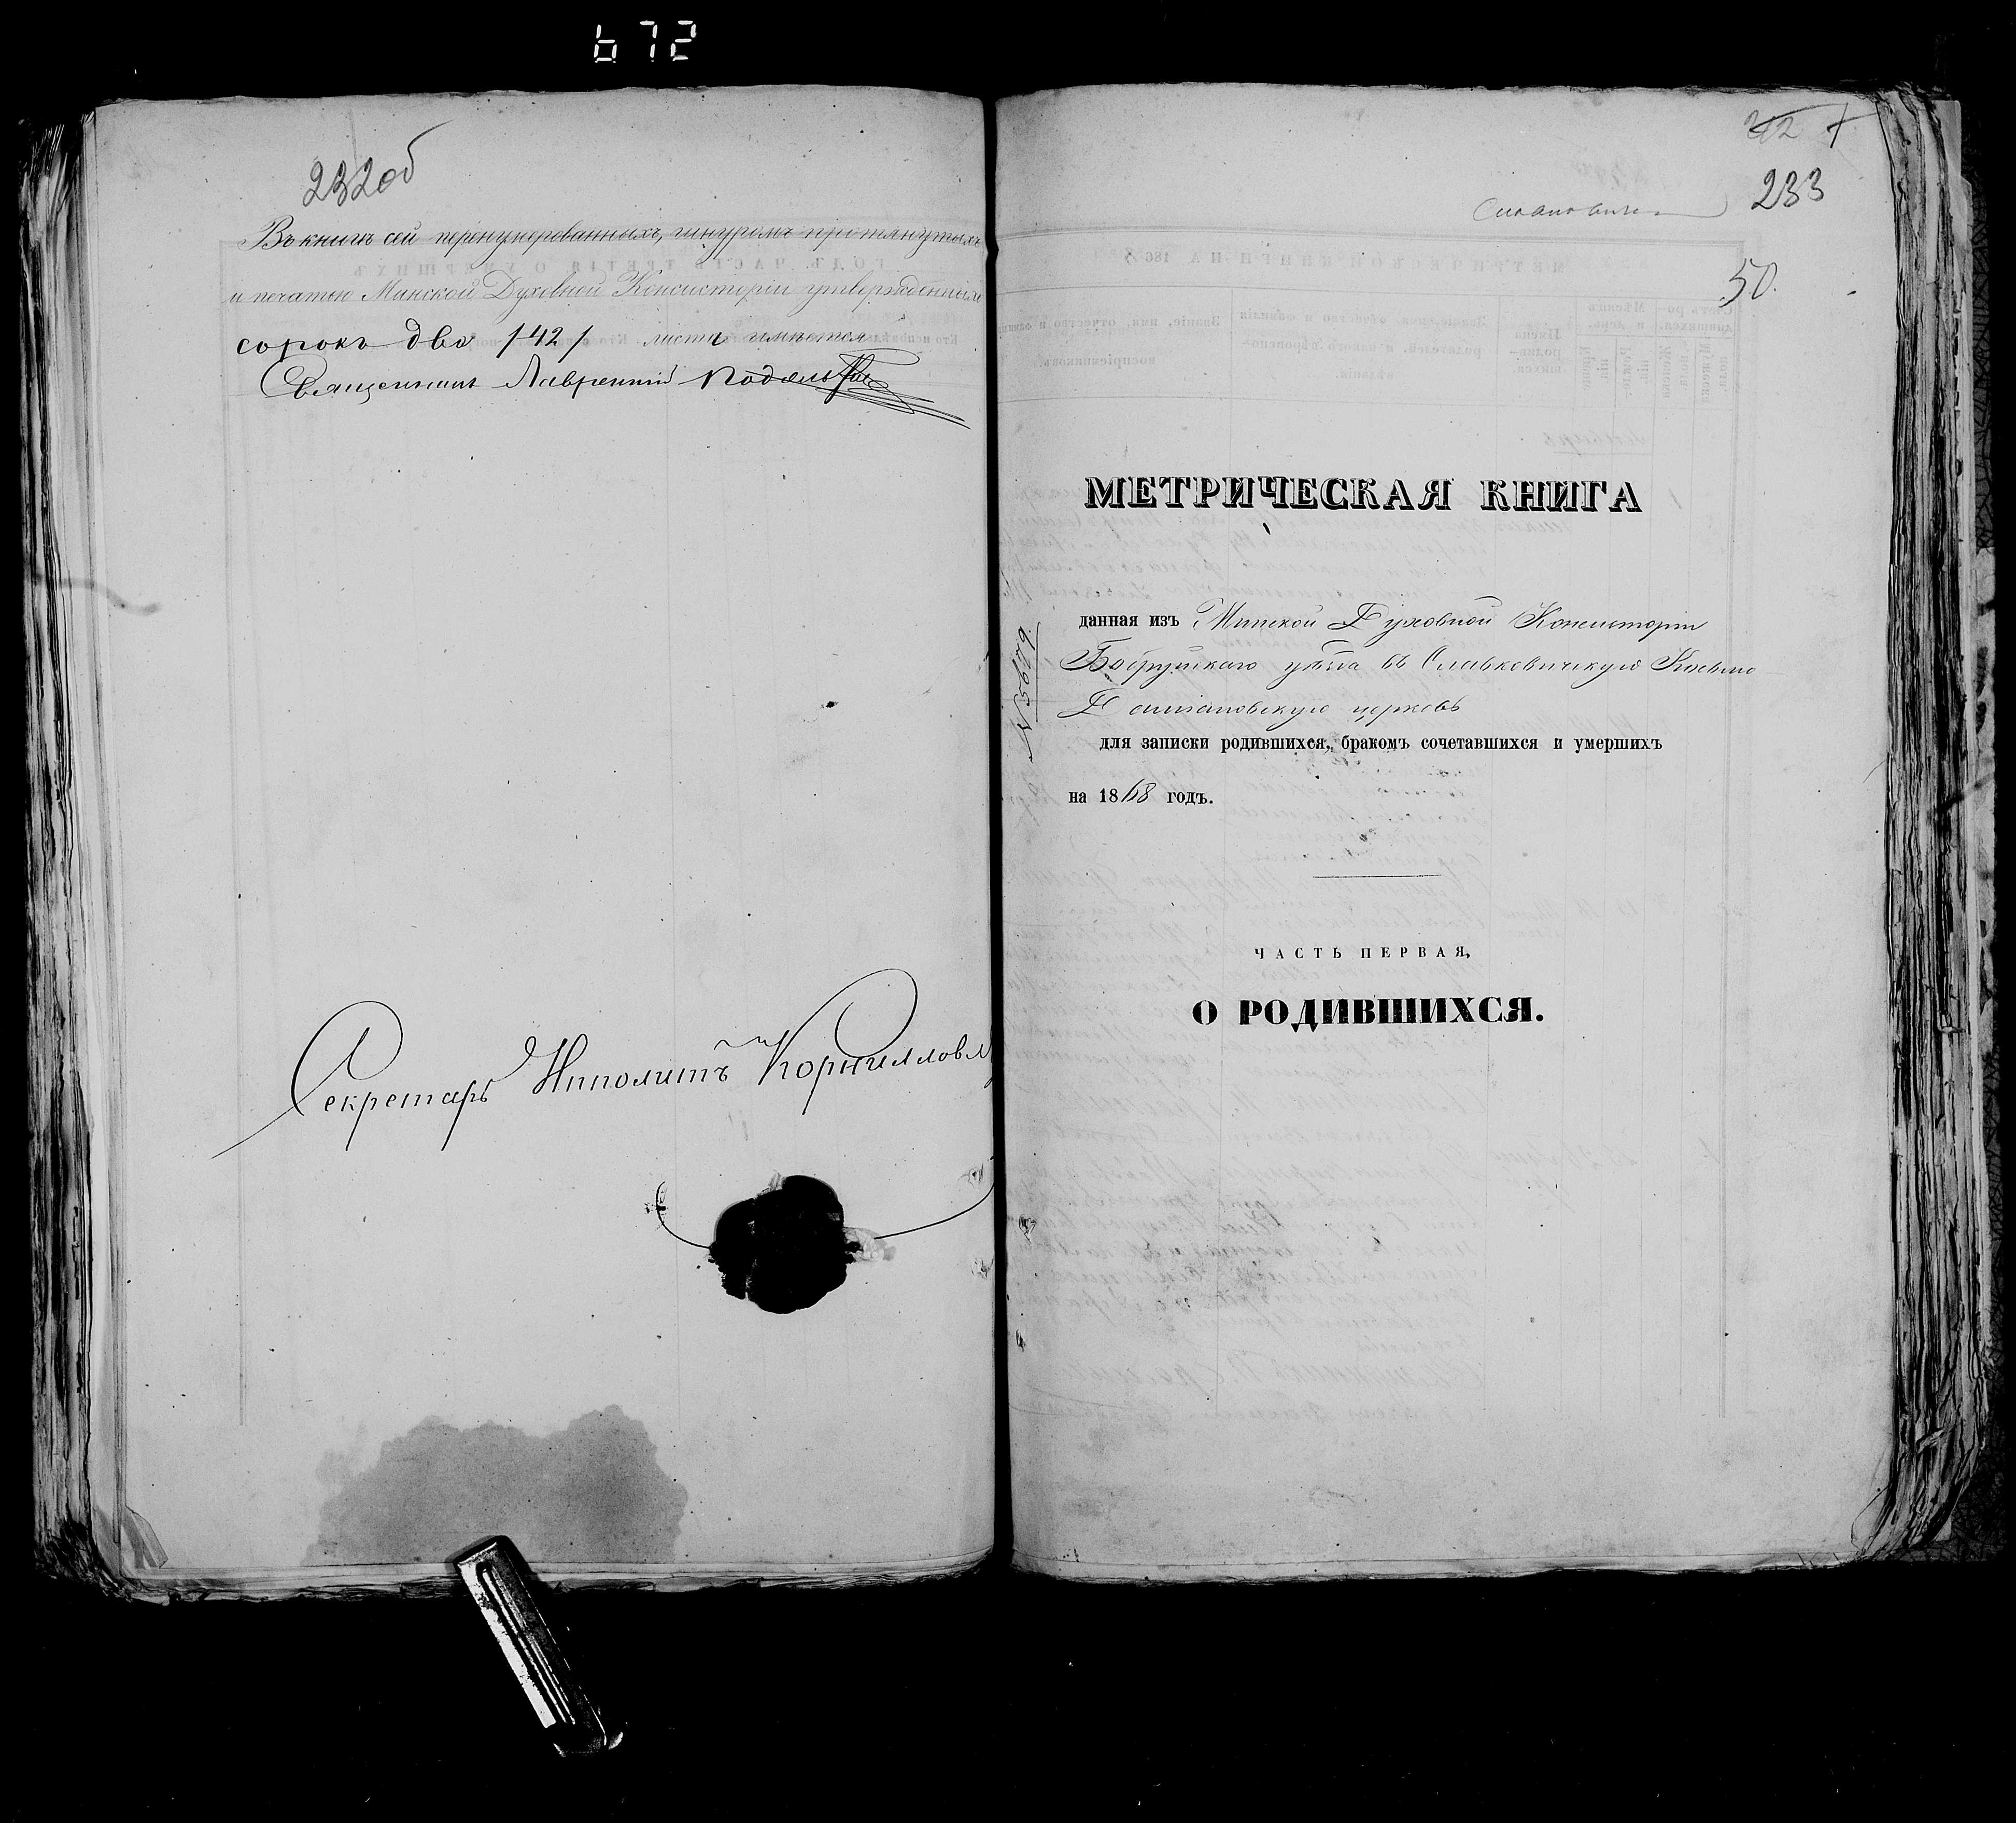 672
232об
Въ книгѣ сей перенумерованныхъ, шнуромъ протянутыхъ
и печатью Минской Духовной Консисторіи утвержденныхъ
сорокъ два /42/ листа имѣется
Священникъ Лаврентій
Секретарь Иполитъ Корнилловъ
233
50.
МЕТРИЧЕСКАЯ КНИГА
данная изъ Минской Духовной Консисторіи
Бобруйскаго уѣзда въ Славковичскую Косьмо
Даміановскую церковь
для записки родившихся, бракомъ сочетавшихся и умершихъ
на 1868 годъ.
ЧАСТЬ ПЕРВАЯ,
О РОДИВШИХСЯ.